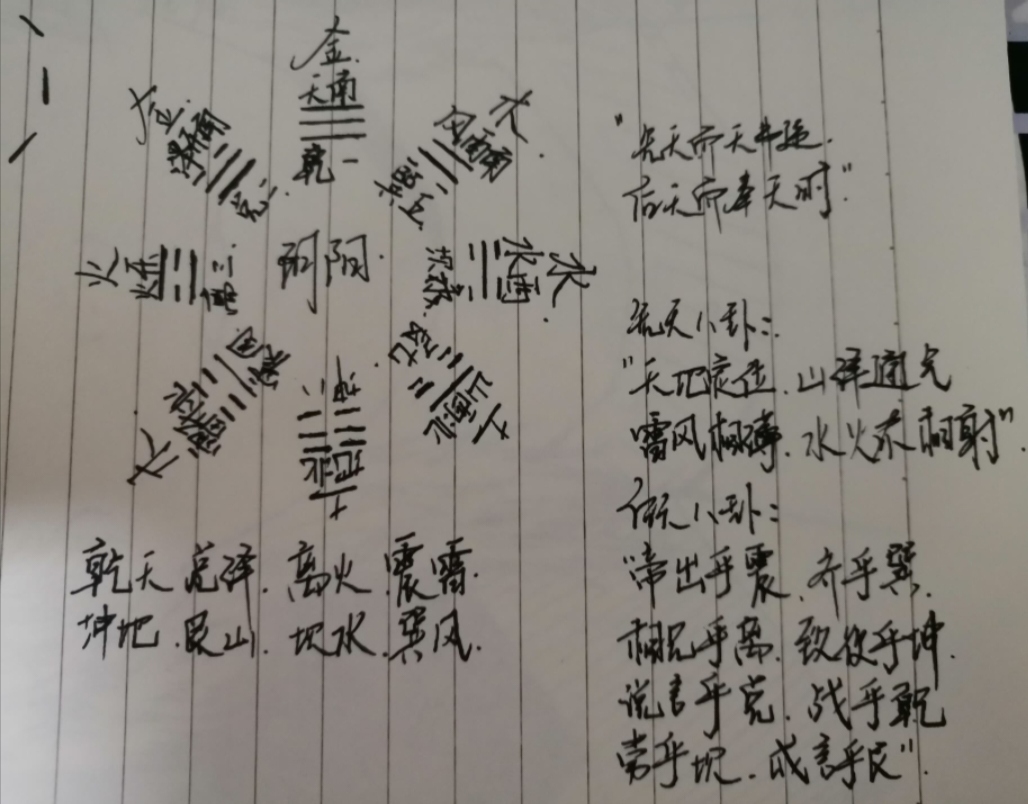 金
天南
乾一
木
风西南
巽五
水
水西
坎六
土
山西北
艮七
土
地北
坤八
木
雷东北
震四
火
火东
离三
金
泽东南
兑二
阴阳
乾天.兑泽.离火.震雷.
坤地.艮山.坎水.巽风.
"先天而天弗违.
后天而奉天时"
先天八卦:
"天地定位.山泽通气
雷风相薄.水火不相射".
后天八卦:
"帝出乎震.齐乎巽.
相见乎离.致役乎坤.
说言乎兑.战乎乾
劳乎坎.成言乎艮".